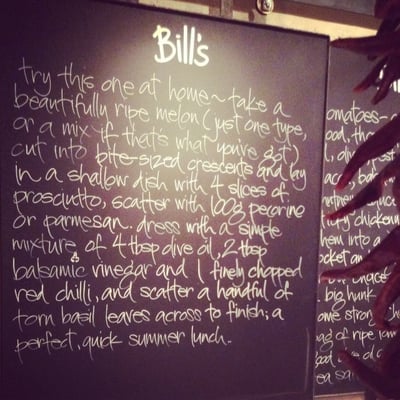 Bill's
try this one at home~ take a
beautifully ripe melon (just one type,
or a mix if that's what you've got)
cut into bite-sized crescents and lay
in a shallow dish with 4 slices of
prosciutto, scatter with 100g pecorino
or parmesan. dress with a simple
mixture of 4 tbsp olive oil, 2 tbsp
balsamic vinegar and 1 finely chopped
red chilli, and scatter a handful of
torn basil leaves across to finish; a
perfect, quick summer lunch..
omatoes~
into a
big hunk
strong
of ripe